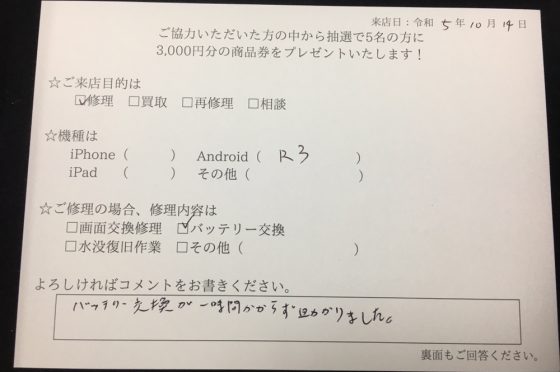 来店日：令和 5年 10月 14日
ご協力いただいた方の中から抽選で5名の方に
3,000円分の商品券をプレゼントいたします！
☆ご来店目的は
☑修理 □買取 □再修理 □相談
☆機種は
iPhone（　　　） Android（ R3 ）
iPad （　　　） その他（　　　　　　）
☆ご修理の場合、修理内容は
□画面交換修理 ☑バッテリー交換
□水没復旧作業 □その他（　　　　　　）
よろしければコメントをお書きください。
バッテリー交換が一時間かからず助かりました。
裏面もご回答ください。